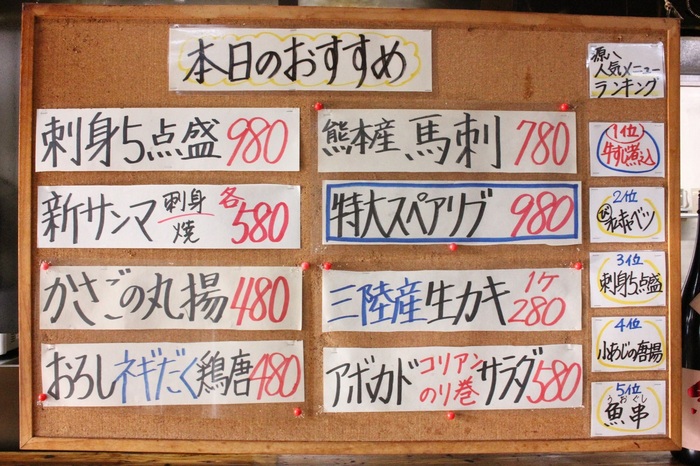 本日のおすすめ
刺身5点盛 980
新サンマ 刺身 焼 各580
かさごの丸揚 480
おろしネギだく鶏唐 480
熊本産 馬刺 780
特大スペアリブ 980
三陸産生カキ 1ケ 280
アボカド コリアンのり巻 サラダ 580
源八
人気メニュー
ランキング
1位
牛すじ煮込
2位
キャベツ
3位
刺身5点盛
4位
小あじの唐揚
5位
うおぐし
魚串